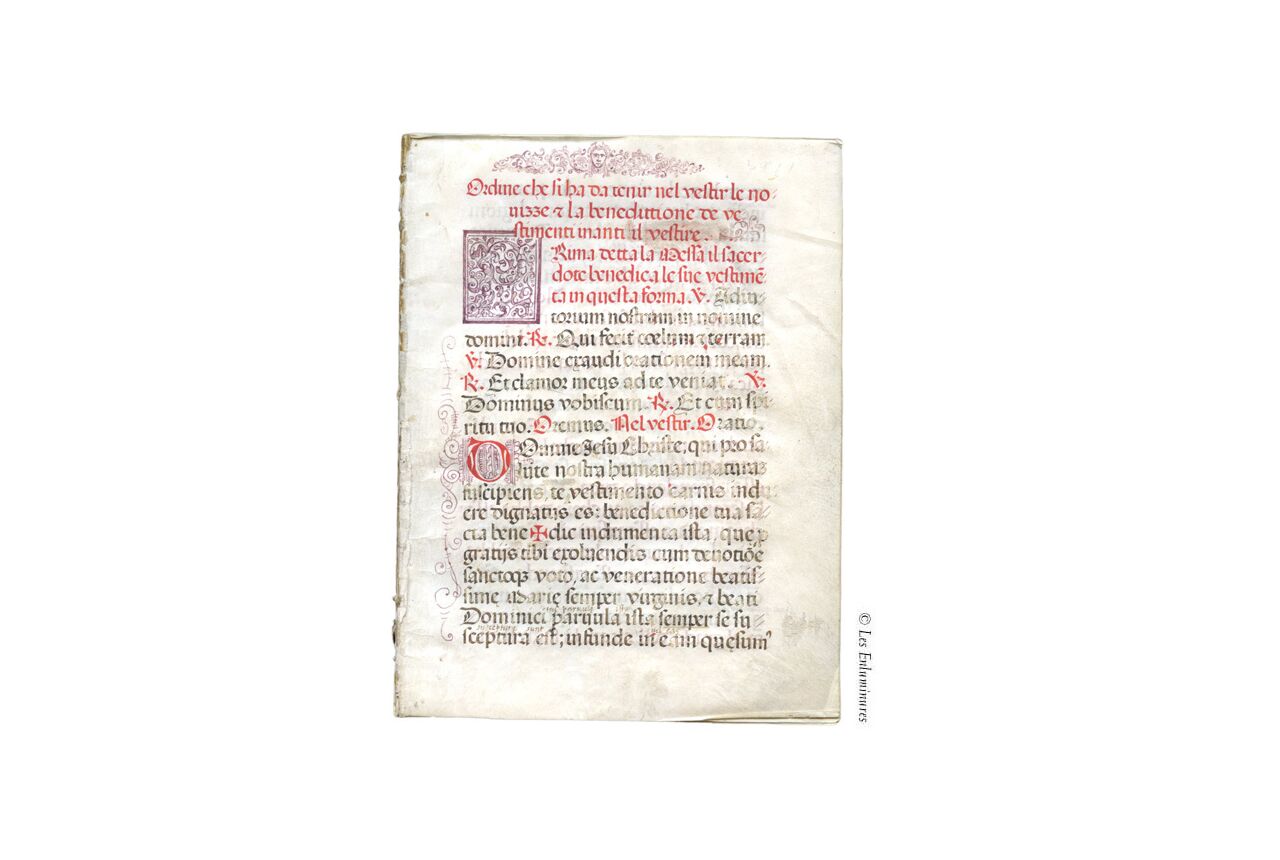 Ordine che si ha da tenir nel vestir le no-
uizze & la benedittione de ve
stimenti inanti il vestire.
PRima detta la Messa il sacer-
dote benedica le sue vestimē
ta in questa forma. V. Adiu-
torium nostrum in nomine
domini. R. Qui fecit cœlum & terram.
V. Domine exaudi orationem meam.
R. Et clamor meus ad te veniat. V.
Dominus vobiscum. R. Et cum spi-
ritu tuo. Oremus. Nel vestir. Oratio.
DOmine Jesu Christe, qui pro sa-
lute nostra humanam naturaʒ
suscipiens, te vestimento carnis indu-
ere dignatus es: benedictione tua sā-
cta bene ✠ dic indumenta ista, que ꝑ
gratijs tibi exoluendis cum deuotiōe
sanctoqꝫ voto, ac veneratione beatis-
sime Marie semper virginis, & beati
Dominici paruula ista semper se su
sceptura est; infunde in eam quesum'
© Les Enluminures